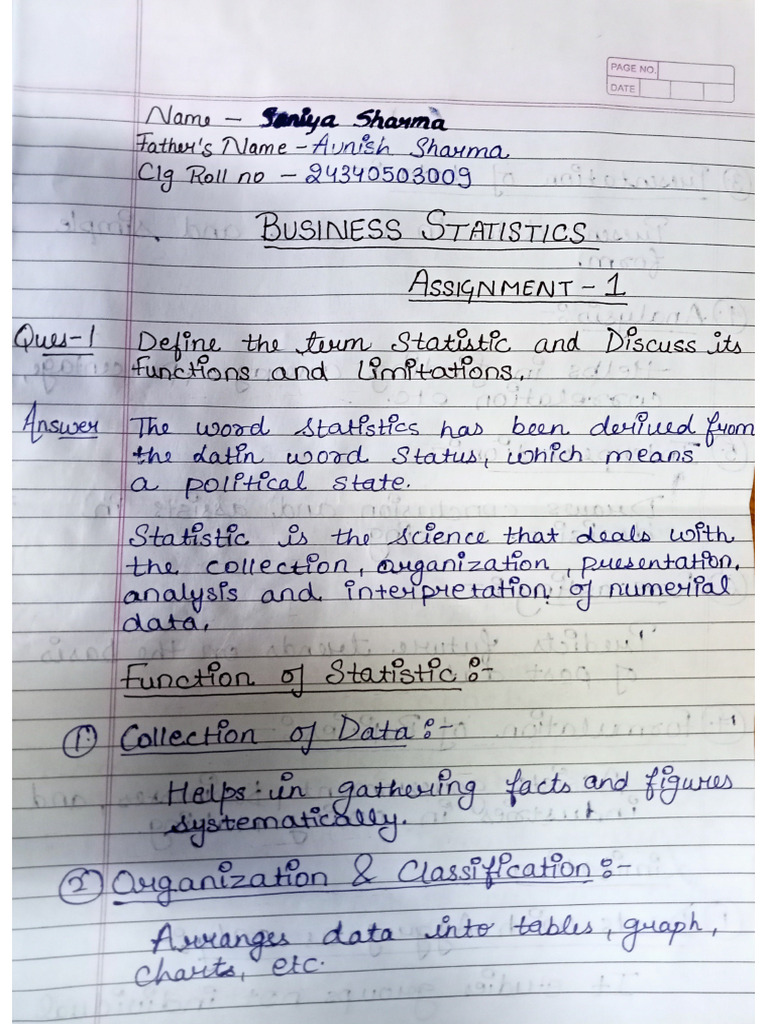 PAGE NO.
DATE
Name - Soniya Sharma
Father's Name - Avnish Sharma
Clg Roll no - 24340503009
BUSINESS STATISTICS
ASSIGNMENT - 1
Ques-1 Define the term Statistic and Discuss its
functions and limitations.
Answer The word statistics has been derived from
the Latin word Status, which means
a political state.
Statistic is the science that deals with
the collection, organization, presentation,
analysis and interpretation of numerial
data.
Function of Statistic :-
① Collection of Data :-
Helps in gathering facts and figures
systematically.
② Organization & Classification :-
Arranges data into tables, graph,
charts, etc.